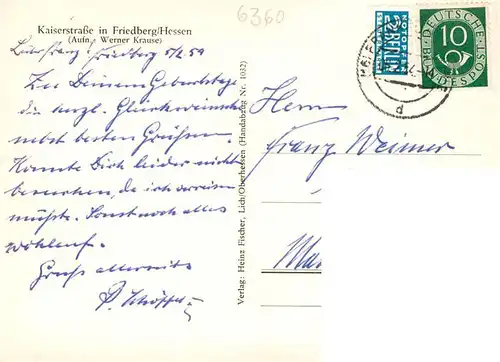 6360
Kaiserstraße in Friedberg/Hessen
(Aufn.: Werner Krause)
Lieber Franz! Friedberg 5/2.59
Zu Deinem Geburtstage
die herzl. Glückwünsche
nebst besten Grüßen.
Konnte Dich leider nicht
besuchen, da ich verreisen
mußte. Sonst noch alles
wohlauf.
Gruß allerseits
Verlag: Heinz Fischer, Lich/Oberhessen (Handabzug Nr. 1032)
NOTOPFER
2 BERLIN
STEUERMARKE
DEUTSCHE
10
BUNDESPOST
d
Herrn
Franz Weimer